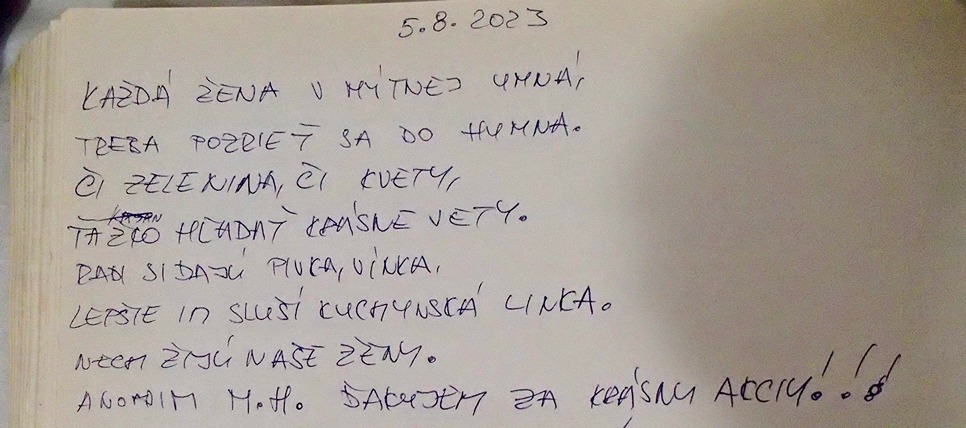 5.8.2023
KAŽDÁ ŽENA V MÝTNEJ UMNÁ,
TREBA POZRIEŤ SA DO HUMNA.
ČI ZELENINA, ČI KVETY,
ŤAŽKO HĽADAŤ KRÁSNE VETY.
RADI SI DAJÚ PIVKA, VÍNKA,
LEPŠIE IM SLUŠÍ KUCHYNSKÁ LINKA.
NECH ŽIJÚ NAŠE ŽENY.
ANONIM M.H. ĎAKUJEM ZA KRÁSNU AKCIU!!!